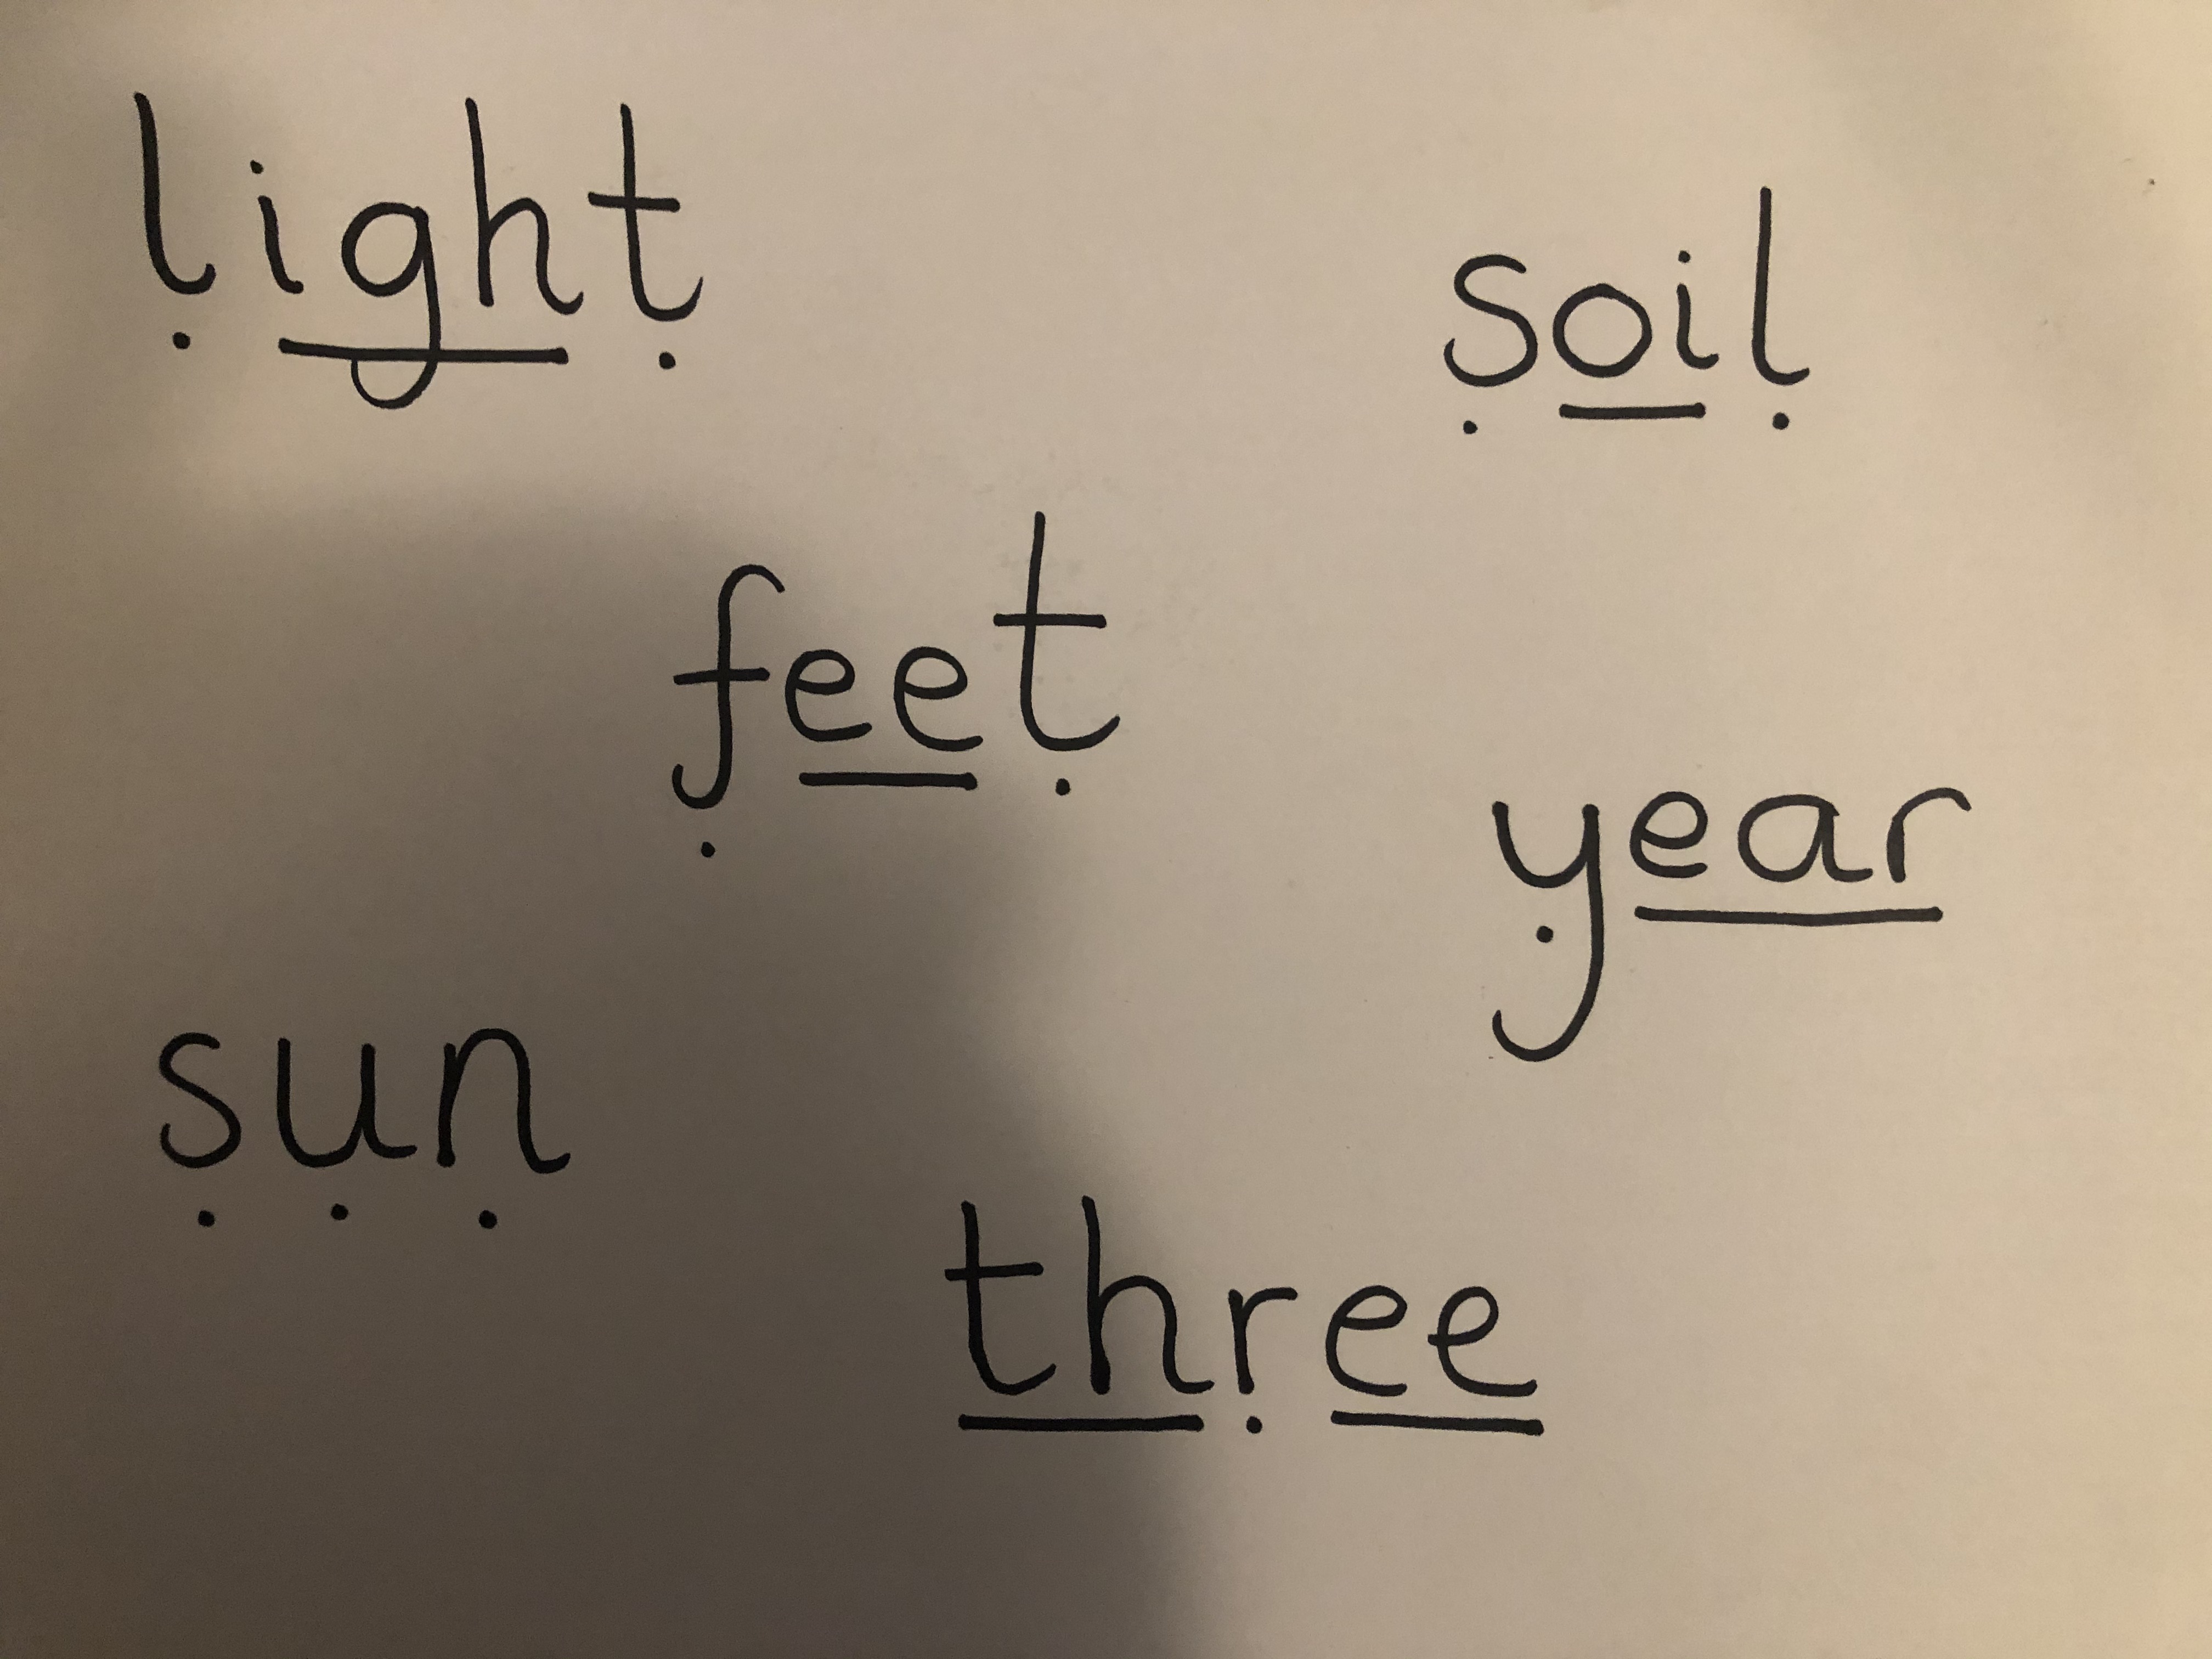 light
soil
feet
year
sun
three